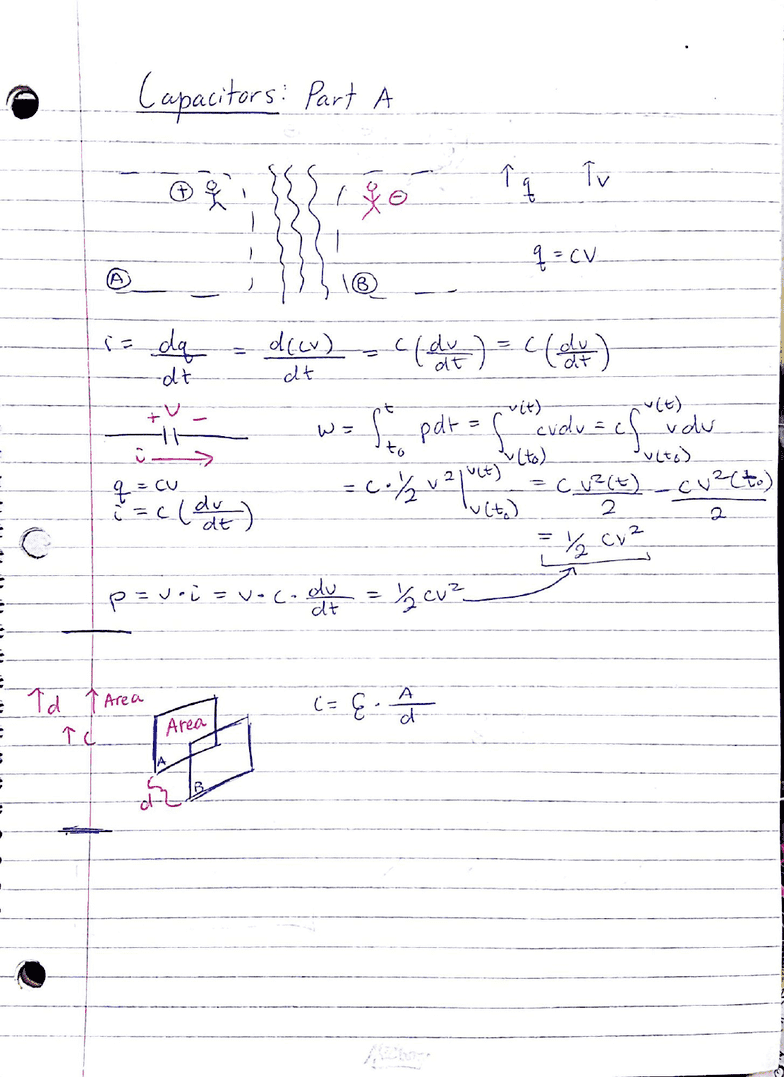 Capacitors: Part A
⊕ ⊖ ↑q ↑v
q = cv
Ⓐ Ⓑ
i = dq/dt = d(cv)/dt = c(dv/dt) = c(dv/dt)
+ v -
i →
q = cv
i = c(dv/dt)
w = ∫_{t₀}^{t} pdt = ∫_{v(t₀)}^{v(t)} cvdv = c∫_{v(t₀)}^{v(t)} vdv
= c · ½ v² |_{v(t₀)}^{v(t)} = c v²(t)/2 - cv²(t₀)/2
= ½ cv²
p = v · i = v · c · dv/dt = ½ cv²
↑d ↑Area
↑c
Area
A
B
d
c = ε · A/d